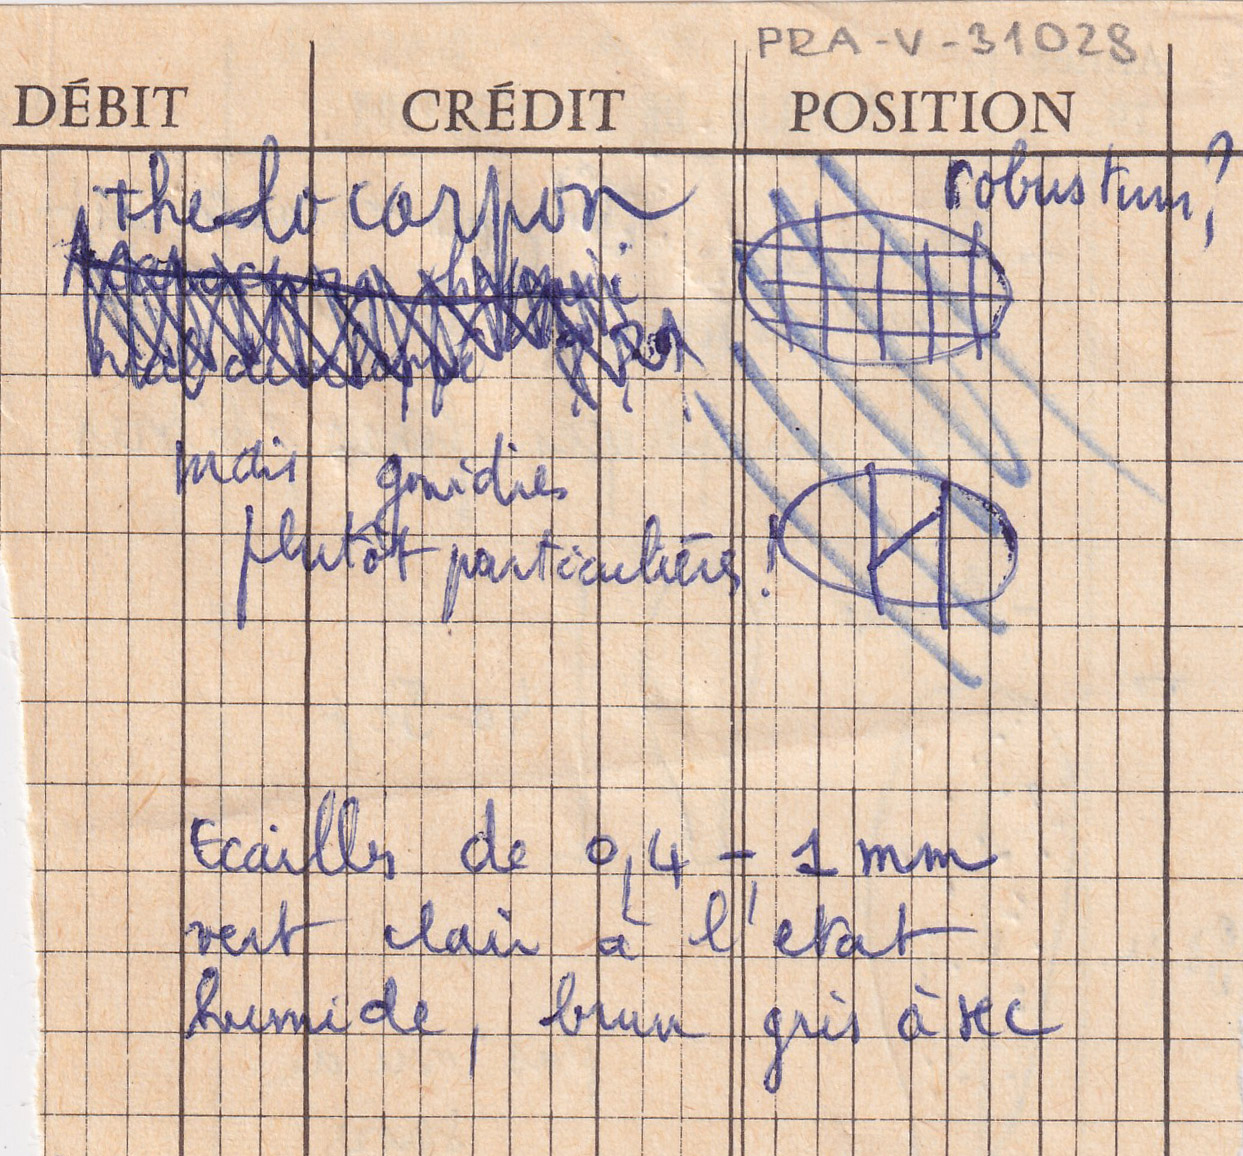 PRA-V-31028
DÉBIT CRÉDIT POSITION
thelocarpon robustum?
mais gonidies
plutôt particulières!
Ecailles de 0,4 - 1 mm
vert clair à l'etat
humide, brun gris à sec